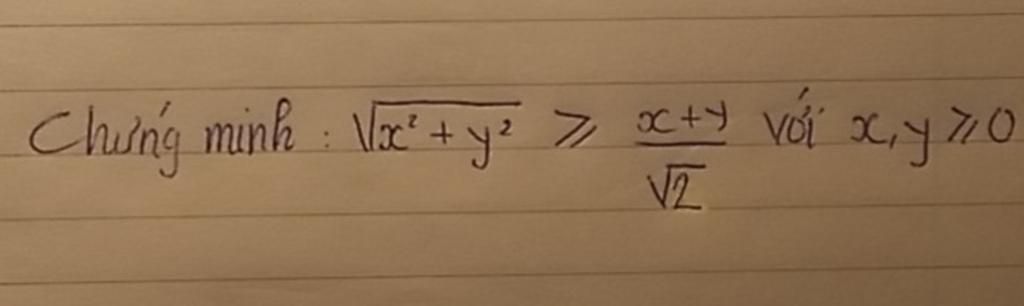 Chứng minh : √(x² + y²) ⩾ (x+y)/√2 với x, y ⩾ 0